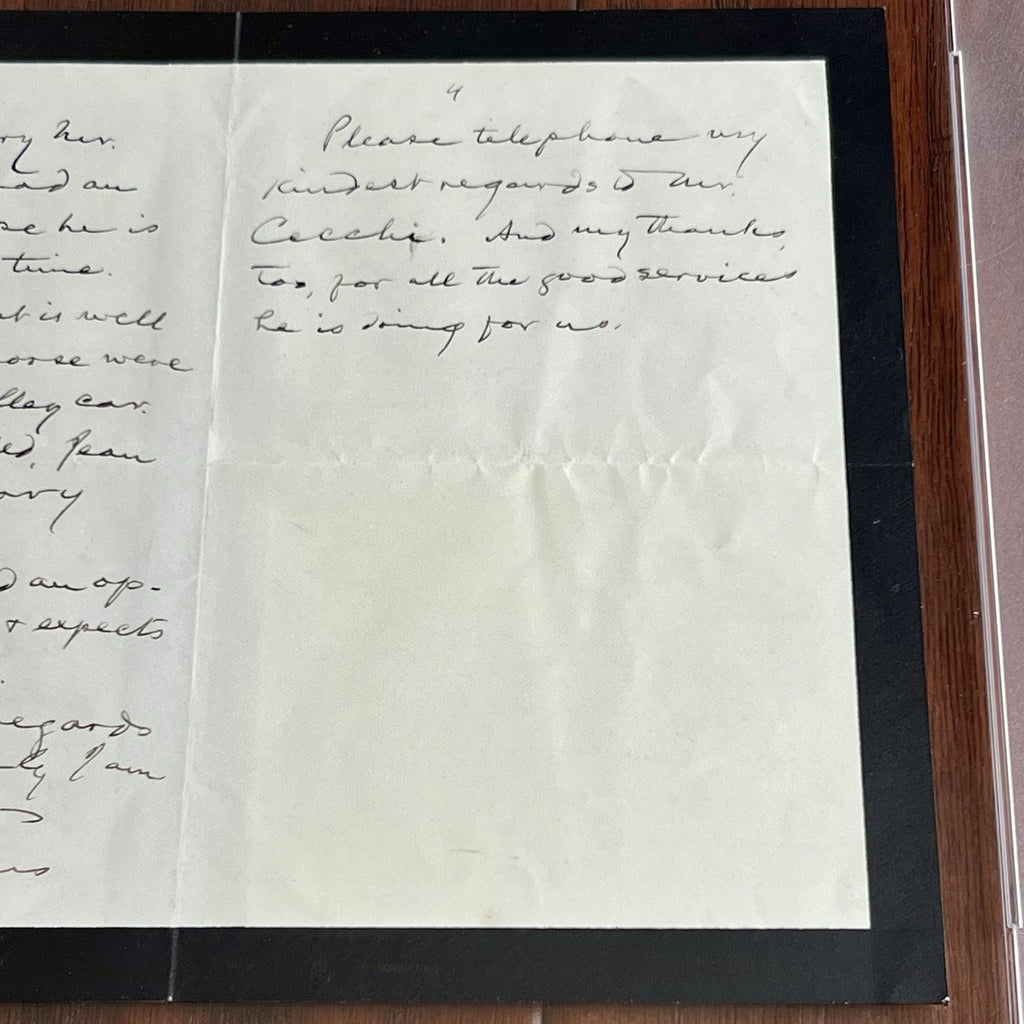 ry Mr.
had an
se he is
time.
ut is well
orse were
lley car.
ed, Jean
ovy
d an op-
+ expects
regards
ly I am
4
Please telephone my
kindest regards to Mr.
Cecchi. And my thanks,
too, for all the good services
he is doing for us.